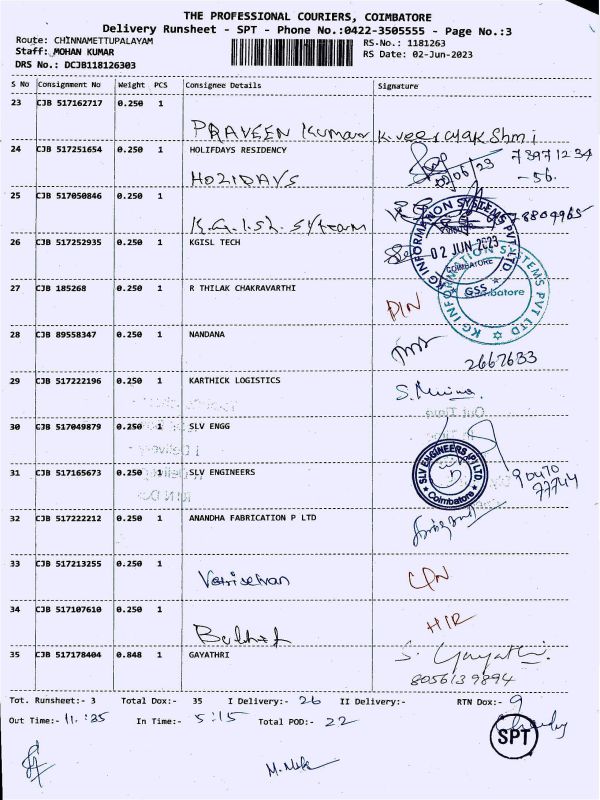 THE PROFESSIONAL COURIERS, COIMBATORE
Delivery Runsheet - SPT - Phone No.:0422-3505555 - Page No.:3
Route: CHINNAMETTUPALAYAM RS.No.: 1181263
Staff: MOHAN KUMAR RS Date: 02-Jun-2023
DRS No.: DCJB118126303
S No Consignment No Weight PCS Consignee Details Signature
23 CJB 517162717 0.250 1
PRAVEEN Kumar K.veerayakshmi
24 CJB 517251654 0.250 1 HOLIFDAYS RESIDENCY 73971234
02/06/23 -56.
HOLIDAYS
25 CJB 517050846 0.250 1
K.G.I.sh. System 78804965
26 CJB 517252935 0.250 1 KGISL TECH
KG INFORMATION SYSTEMS PVT LTD.
02 JUN 2023
COIMBATORE
GSS
27 CJB 185268 0.250 1 R THILAK CHAKRAVARTHI
KG INFORMATION SYSTEMS PVT LTD
Coimbatore
28 CJB 89558347 0.250 1 NANDANA
2667633
29 CJB 517222196 0.250 1 KARTHICK LOGISTICS
30 CJB 517049879 0.250 1 SLV ENGG
31 CJB 517165673 0.250 1 SLV ENGINEERS
SLV ENGINEERS (P) LTD
Coimbatore
90470
77744
32 CJB 517222212 0.250 1 ANANDHA FABRICATION P LTD
33 CJB 517213255 0.250 1
Vetriselvan
34 CJB 517107610 0.250 1
35 CJB 517178404 0.848 1 GAYATHRI S. Gayathri.
8056139894
Tot. Runsheet:- 3 Total Dox:- 35 I Delivery:- 26 II Delivery:- RTN Dox:- 9
Out Time:- 11:35 In Time:- 5:15 Total POD:- 22
SPT